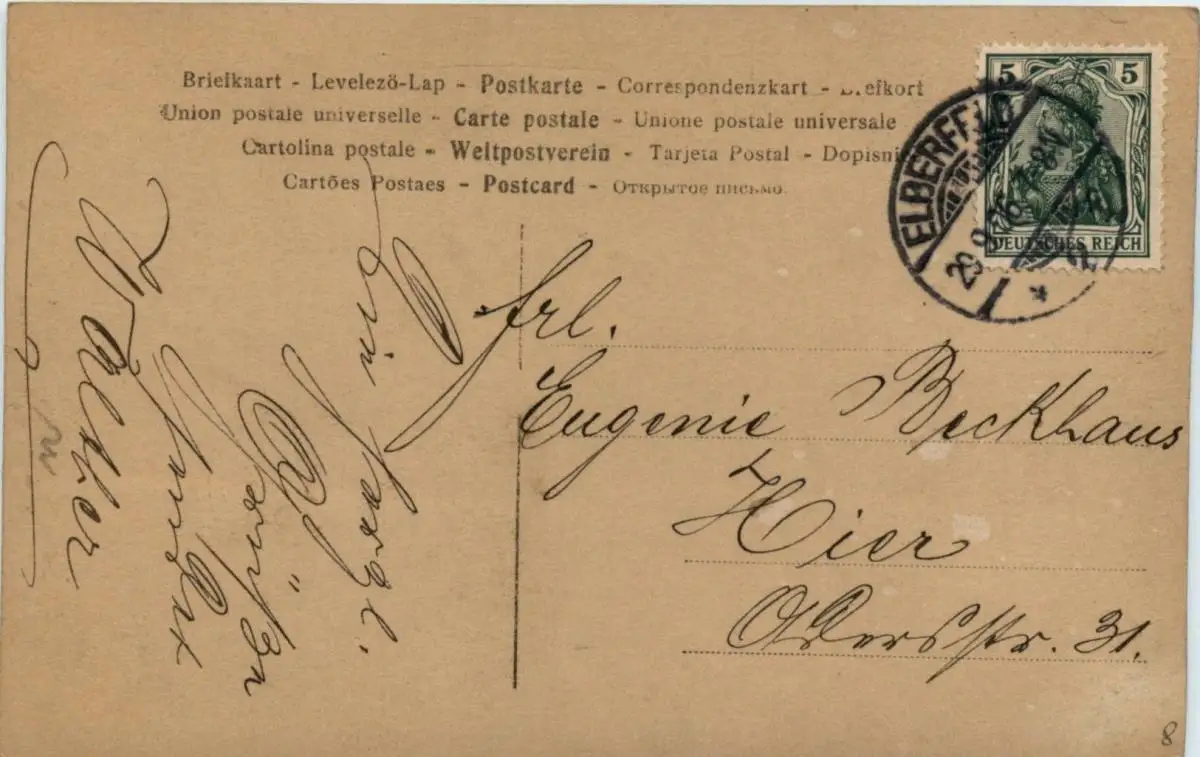 Briefkaart - Levelező-Lap - Postkarte - Correspondenzkart - Brefkort
Union postale universelle - Carte postale - Unione postale universale
Cartolina postale - Weltpostverein - Tarjeta Postal - Dopisni
Cartões Postaes - Postcard - Открытое письмо.
5 5
DEUTSCHES REICH
ELBERFELD
29.9.06. 7-8 N.
* 2
Frl.
Eugenie Beckhaus
Hier
Adersstr. 31.
Grüße
Walter
8